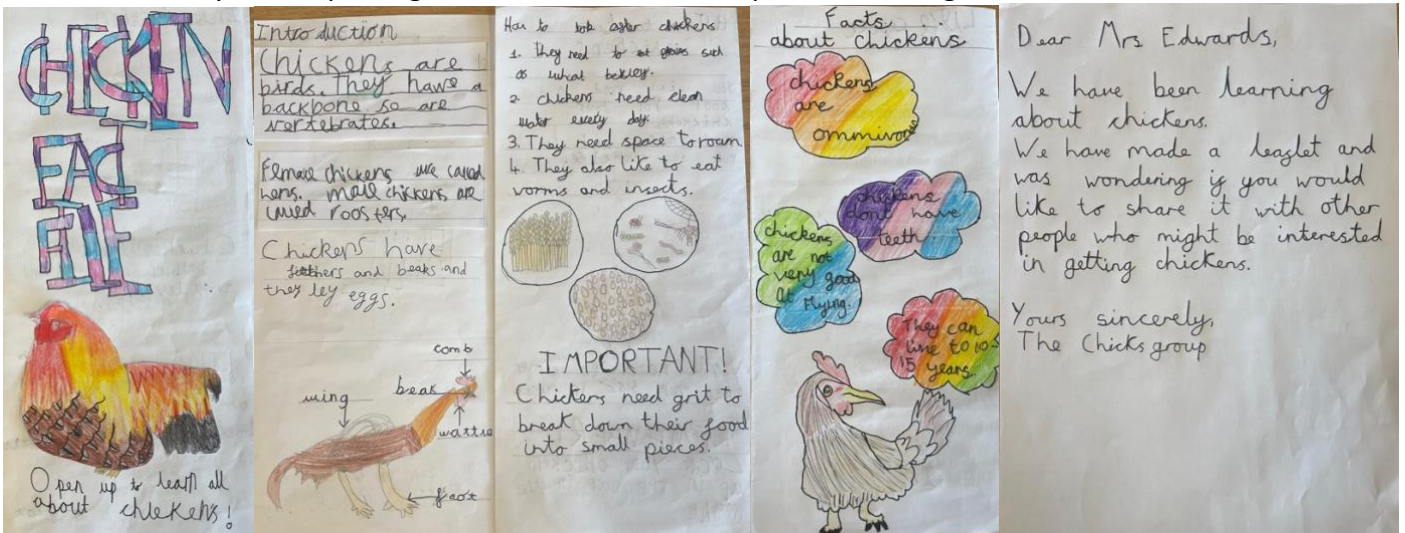 CHICKEN
FACT
FILE
Open up to learn all
about chickens!
Introduction
Chickens are
birds. They have a
backbone so are
vertebrates.
Female chickens are called
hens. male chickens are
called roosters.
Chickens have
feathers and beaks and
they ley eggs.
comb
beak
wing
wattle
foot
How to look after chickens
1. They need to eat grains such
as wheat
2. chickens need clean
water every day.
3. They need space to roam.
4. They also like to eat
worms and insects.
IMPORTANT!
Chickens need grit to
break down their food
into small pieces.
Facts
about chickens
chickens
are
ommivore
chickens
dont have
teeth
chickens
are not
very good
at flying.
They can
live to 10-
15 years.
Dear Mrs Edwards,
We have been learning
about chickens.
We have made a leaflet and
was wondering if you would
like to share it with other
people who might be interested
in getting chickens.
Yours sincerely,
The Chicks group